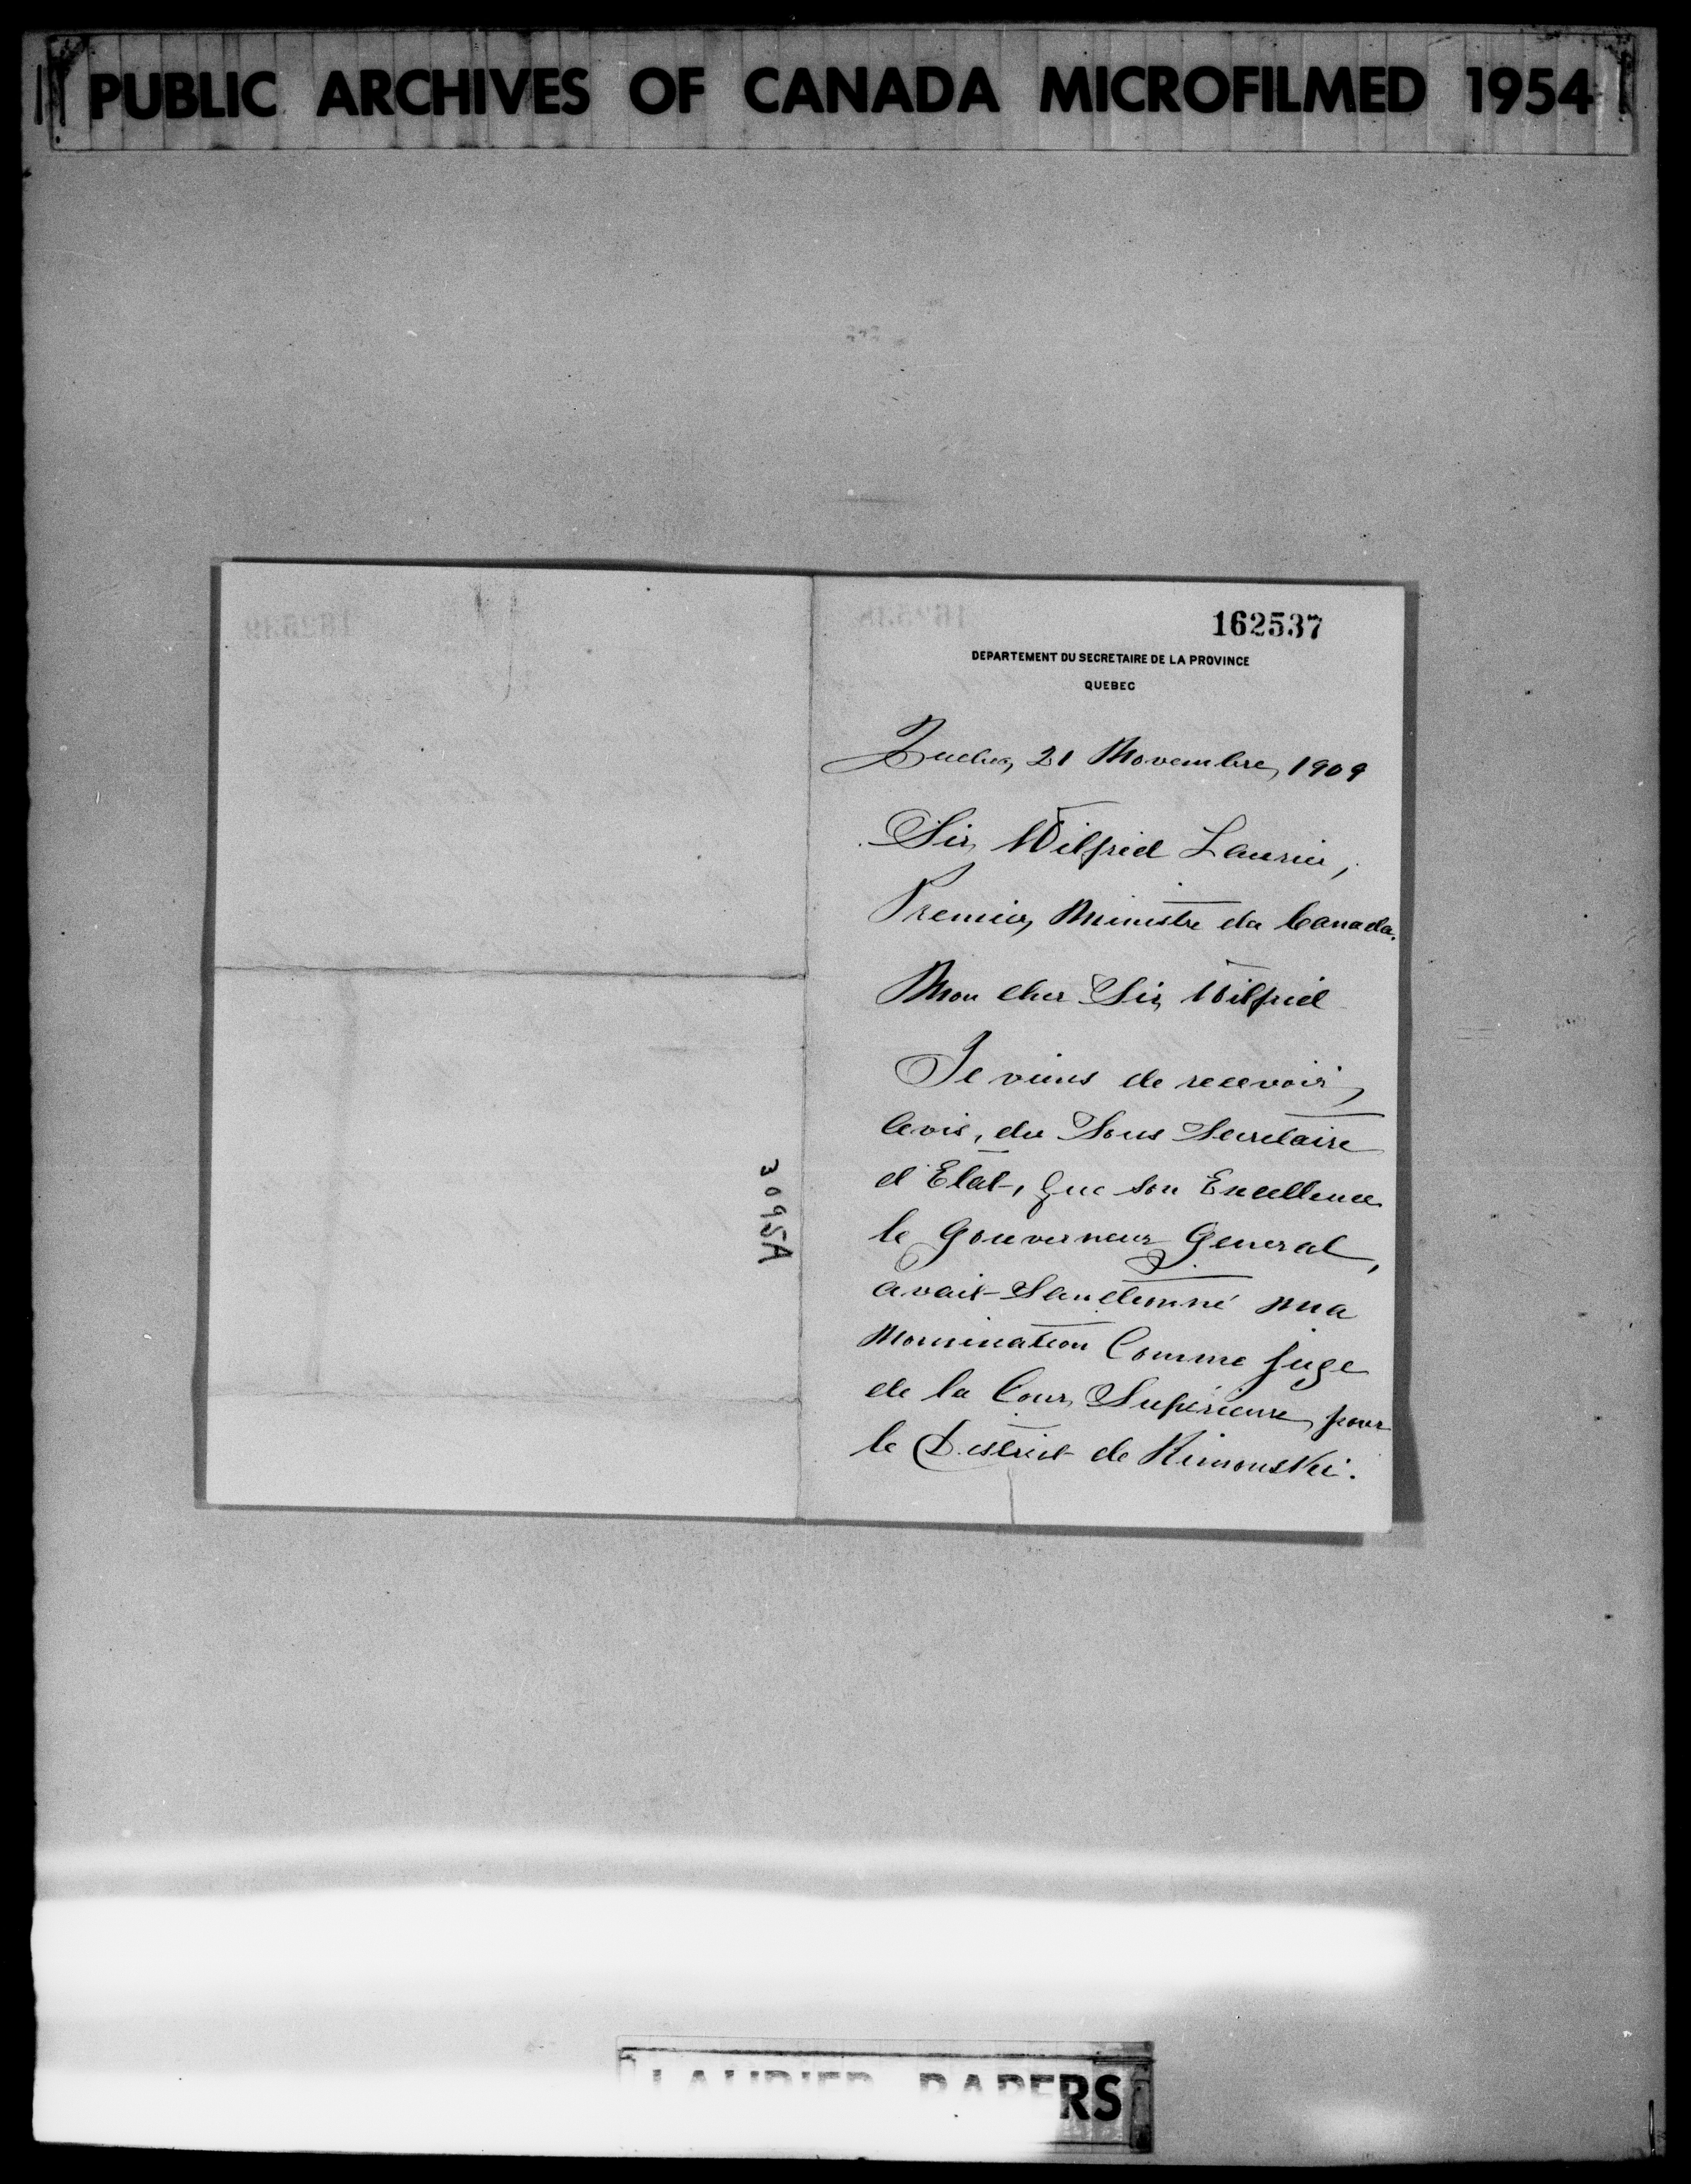 PUBLIC ARCHIVES OF CANADA MICROFILMED 1954
162537
DEPARTEMENT DU SECRETAIRE DE LA PROVINCE
QUEBEC
Quebec, 21 Novembre, 1909
Sir Wilfrid Laurier,
Premier Ministre du Canada.
Mon cher Sir Wilfrid
Je viens de recevoir,
avis, du Sous Secretaire
d'Etat, que son Excellence
le Gouverneur General,
avait Sanctionné ma
Nomination Comme juge
de la Cour Supérieure, pour
le District de Rimouski.
3095A
LAURIER PAPERS